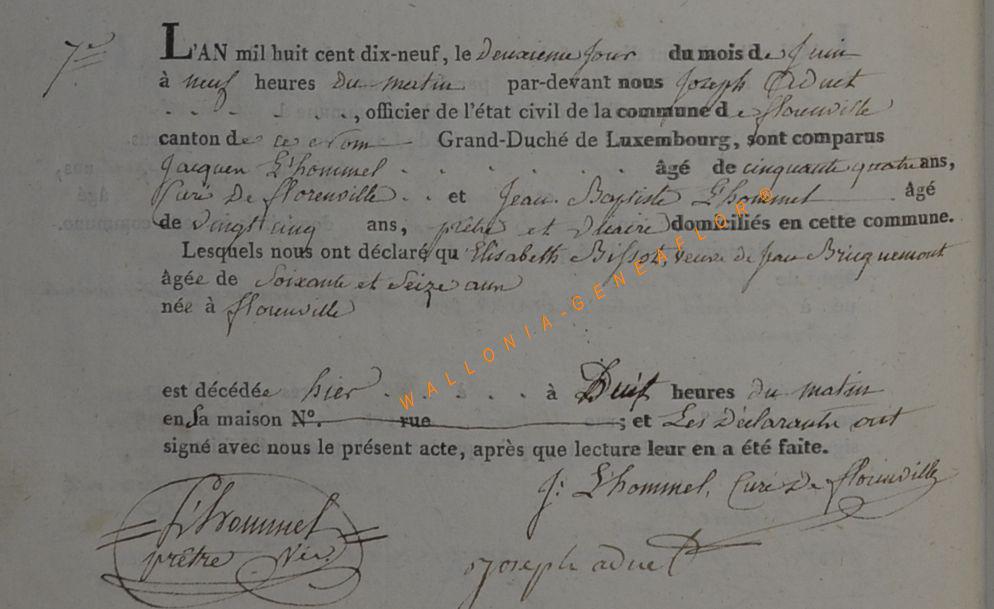 7e
L'AN mil huit cent dix-neuf, le deuxieme jour du mois de juin
à neuf heures du matin par-devant nous Joseph Aduet
, officier de l'état civil de la commune de florenville
canton de ce nom Grand-Duché de Luxembourg, sont comparus
Jacques L'hommel âgé de cinquante quatre ans,
Curé De florenville et Jean Baptiste L'hommel âgé
de vingt cinq ans, prêtre et vicaire domiciliés en cette commune.
Lesquels nous ont déclaré qu'Elisabeth Bissot, veuve de jean Bricquemont
âgée de Soixante et Seize ans
née à florenville
est décédée hier à heures du matin
en sa maison N°. rue ; et Les Déclarants ont
signé avec nous le présent acte, après que lecture leur en a été faite.
J: L'hommel, Curé De florenville
L'hommel
prêtre Vic.
joseph aduet
WALLONIA-GENEAFLOR®